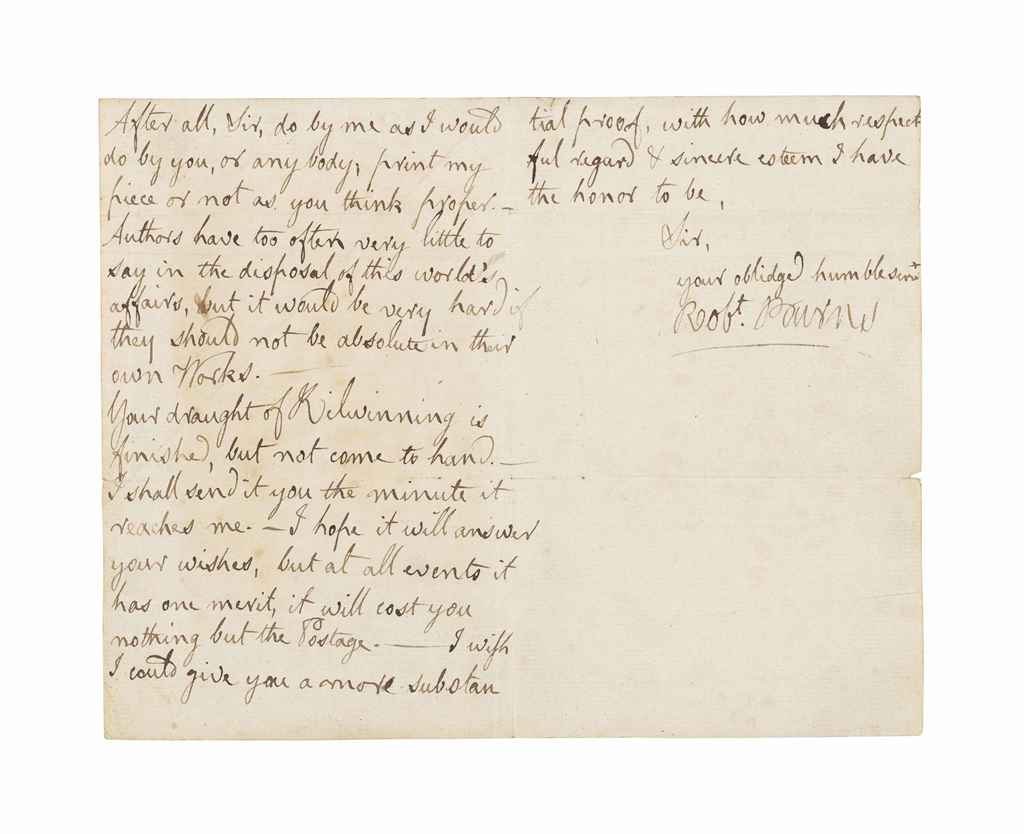 After all, Sir, do by me as I would
do by you, or any body; print my
piece or not as you think proper. —
Authors have too often very little to
say in the disposal of this world's
affairs, but it would be very hard if
they should not be absolute in their
own Works. —
Your draught of Kilwinning is
finished, but not come to hand. —
I shall send it you the minute it
reaches me. — I hope it will answer
your wishes, but at all events it
has one merit, it will cost you
nothing but the Postage. — I wish
I could give you a more substan
tial proof, with how much respect
ful regard & sincere esteem I have
the honor to be,
Sir,
your oblidged humble servt
Robt. Burns